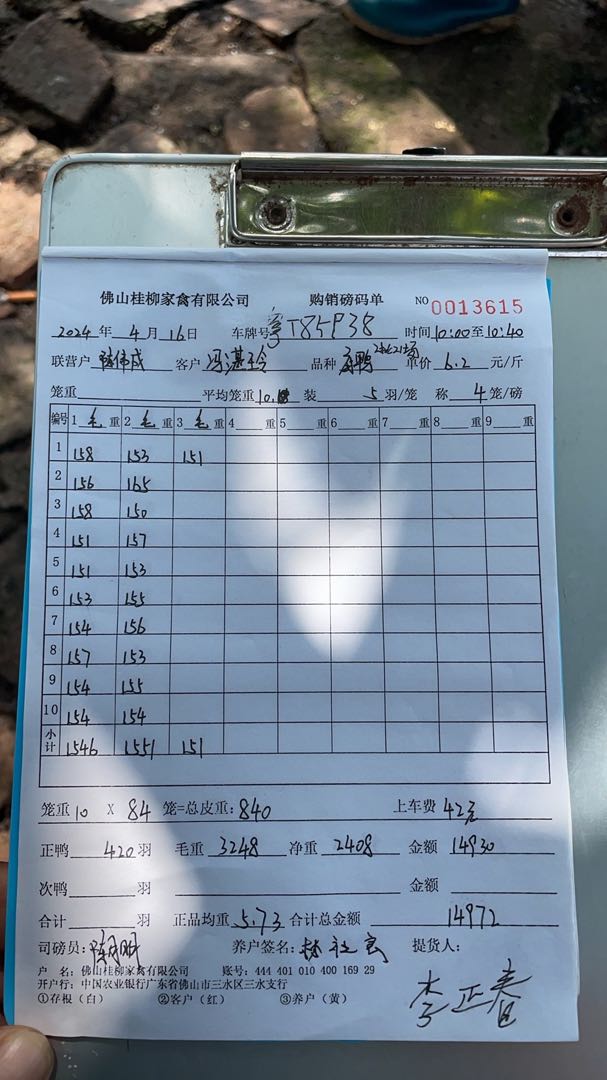 佛山桂柳家禽有限公司 购销磅码单 NO 0013615
2024年4月16日 车牌号 粤T85P38 时间10:00至10:40
联营户 客户 冯湛玲 品种 单价 6.2 元/斤
笼重 平均笼重 10. 装 5 羽/笼 称 4 笼/磅
编号 1 毛 重 2 毛 重 3 毛 重 4 重 5 重 6 重 7 重 8 重 9 重
1 158 153 151
2 156 165
3 158 150
4 151 157
5 151 153
6 153 155
7 154 156
8 157 153
9 154 155
10 154 154
小计 1546 1551 151
笼重 10 X 84 笼=总皮重: 840 上车费 42元
正鸭 420 羽 毛重 3248 净重 2408 金额 14930
次鸭 羽 金额
合计 羽 正品均重 5.73 合计总金额 14972
司磅员: 养户签名: 提货人:
李正春
户 名: 佛山桂柳家禽有限公司 账号: 444 401 010 400 169 29
开户行: 中国农业银行广东省佛山市三水区三水支行
①存根(白) ②客户(红) ③养户(黄)